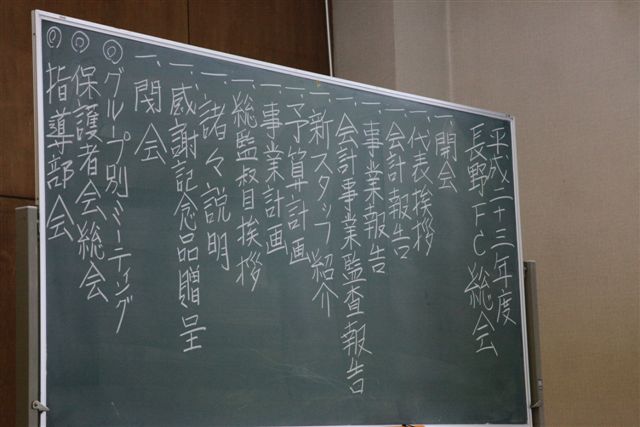 平成二十三年度
長野FC総会
一、開会
一、代表挨拶
一、会計報告
一、事業報告
一、会計事業監査報告
一、新スタッフ紹介
一、予算計画
一、事業計画
一、総監督挨拶
一、諸々説明
一、感謝記念品贈呈
一、閉会
◎グループ別ミーティング
◎保護者会総会
◎指導部会